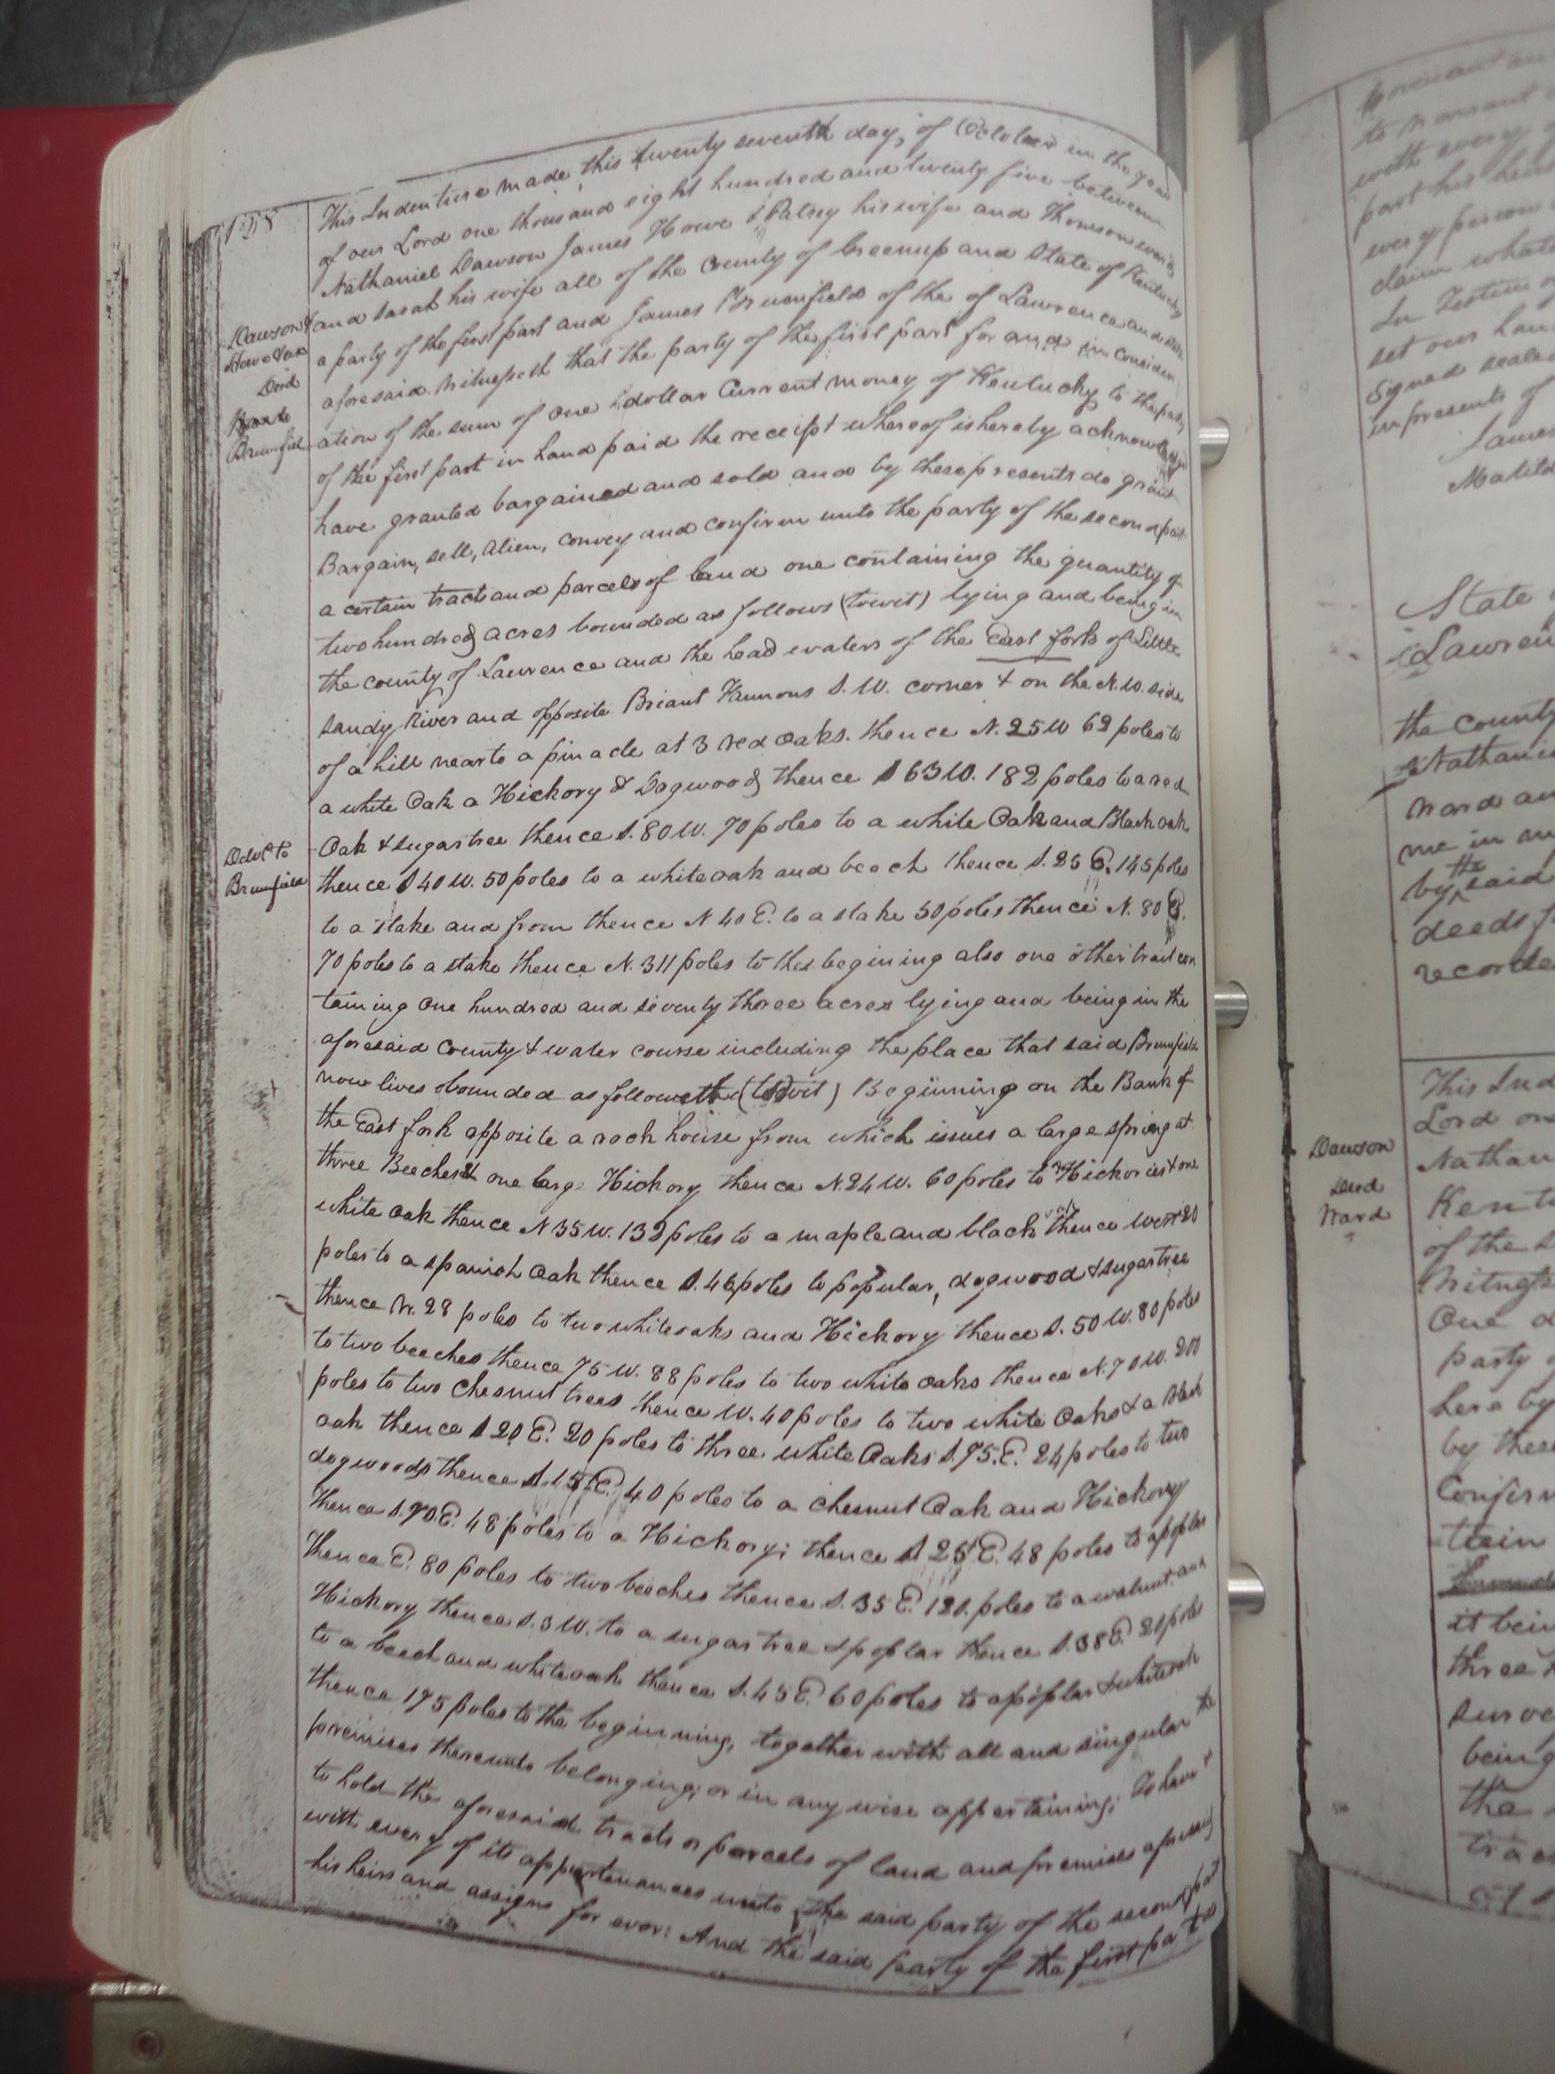 128
This Indenture made this twenty seventh day, of October in the year
of our Lord one thousand eight hundred and twenty five between
Nathaniel Dawson James Howe & Patsey his wife and Thomson
and Sarah his wife all of the County of Greenup and State of Kentucky
a party of the first part and James Brumfield of the of Lawrence and
aforesaid. Witnesseth that the party of the first part for and in consider
ation of the sum of one dollar Current money of Kentucky to the party
of the first part in hand paid the receipt whereof is hereby acknowledged
have granted bargained and sold and by these presents do grant
Bargain, sell, alien, convey and confirm unto the party of the second part
a certain tracts and parcels of land one containing the quantity of
two hundred acres bounded as follows (towit) lying and being in
the county of Lawrence and the head waters of the East fork of Little
Sandy River and opposite Briant Hannons S. W. corner & on the N.W. side
of a hill near to a pinacle at 3 red oaks. thence N. 25 W 62 poles to
a white Oak a Hickory & Dogwood thence S 63 W. 182 poles to a red
Oak & sugartree thence S. 80 W. 70 poles to a white Oak and Black oak
thence S 40 W. 50 poles to a white oak and beech thence S. 25 E. 145 poles
to a stake and from thence N 40 E. to a stake 50 poles thence N. 80 E.
70 poles to a stake thence N. 311 poles to the begining also one other tract con
taining one hundred and seventy three acres lying and being in the
aforesaid County & water course including the place that said Brumfield
now lives bounded as follows (towit) Beginning on the Bank of
the East fork opposite a rock house from which issues a large spring at
three Beeches & one large Hickory thence N. 24 W. 60 poles to Hickories & one
white oak thence N 35 W. 132 poles to a maple and black oak thence west 20
poles to a spanish oak thence S. 46 poles to popular, dogwood & sugartree
thence W. 28 poles to two white oaks and Hickory thence S. 50 W. 80 poles
to two beeches thence 75 W. 88 poles to two white oaks thence N. 70 W. 200
poles to two chesnut trees thence W. 40 poles to two white Oaks & a Black
oak thence S 20 E. 20 poles to three white Oaks S. 75. E. 24 poles to two
dogwoods thence S. 15 E. 40 poles to a chesnut Oak and Hickory
thence S. 70 E. 48 poles to a Hickory; thence S 25 E. 48 poles to a poplar
thence E. 80 poles to two beeches thence S. 35 E. 120. poles to a walnut and
Hickory thence S. 3 W. to a sugar tree & poplar thence S. 38 E. 20 poles
to a beech and white oak thence S. 45 E. 60 poles to a poplar & white oak
thence 175 poles to the beginning, together with all and singular the
premises thereunto belonging; or in any wise appertaining; To have &
to hold the aforesaid tracts or parcels of land and premises aforesaid
with every of its appurtenances unto the said party of the second part
his heirs and assigns for ever: And the said party of the first part do
Dawson &
Howe &
Deed
Brumfield
Deld. to
Brumfield
Covenant
to warrant
with every
part his heirs
every person
claim
In Testim
set our han
Signed sealed
in presents of
James
Matild
State
Lawren
the county
Nathani
Ward an
me in my
by the said
deeds f
recorde
Dawson
Deed
Ward
This Ind
Lord on
Nathan
Kent
of the
Witness
One d
party
here by
by these
Confirm
tain
it bein
three
surve
being
the
trac